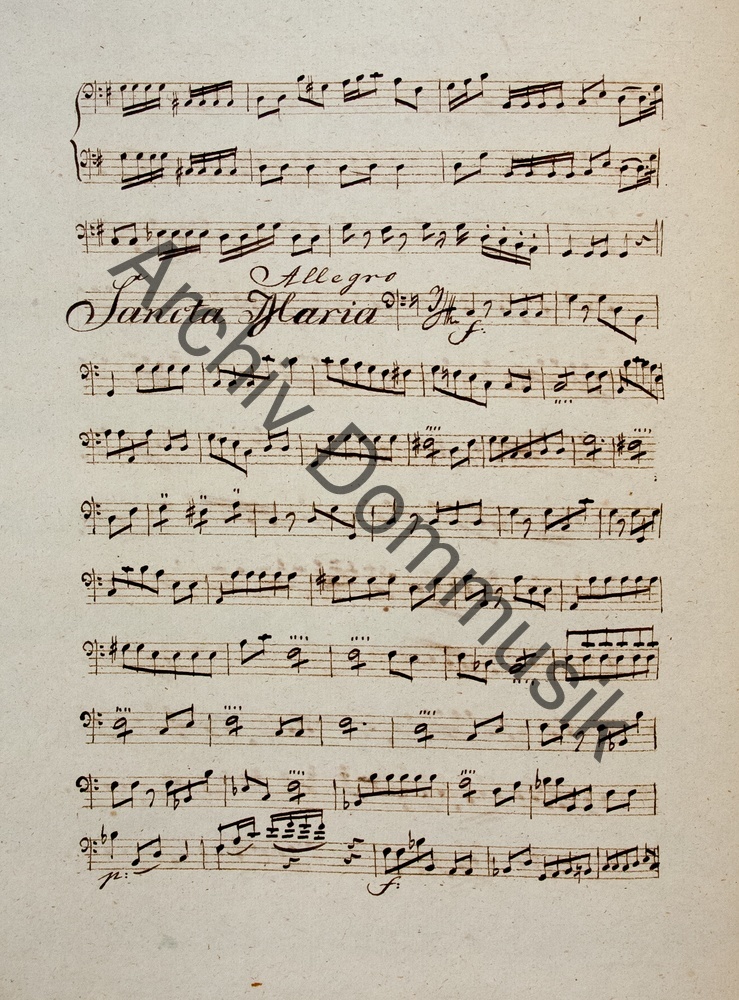 Allegro
Sancta Maria
f.
p:
f.
Archiv Dommusik